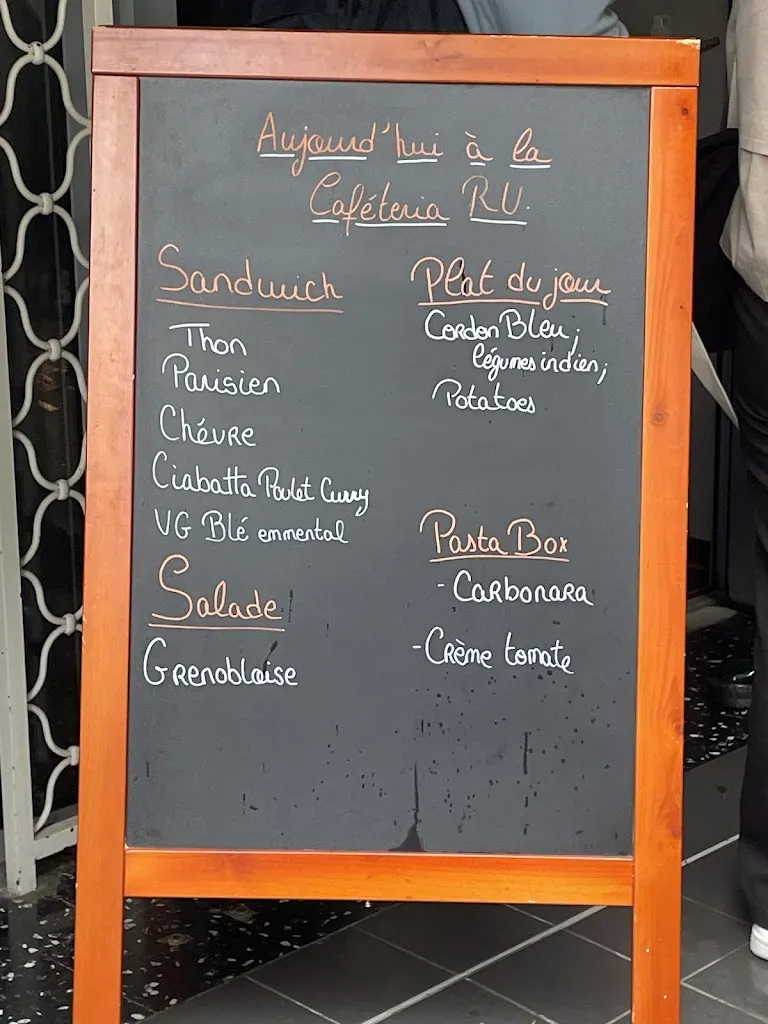 Aujourd'hui à la
Cafétéria RU.
Sandwich
Thon
Parisien
Chévre
Ciabatta Poulet Curry
VG Blé emmental
Salade
Grenobloise
Plat du jour
Cordon Bleu;
légumes indien;
Potatoes
Pasta Box
- Carbonara
- Crème tomate